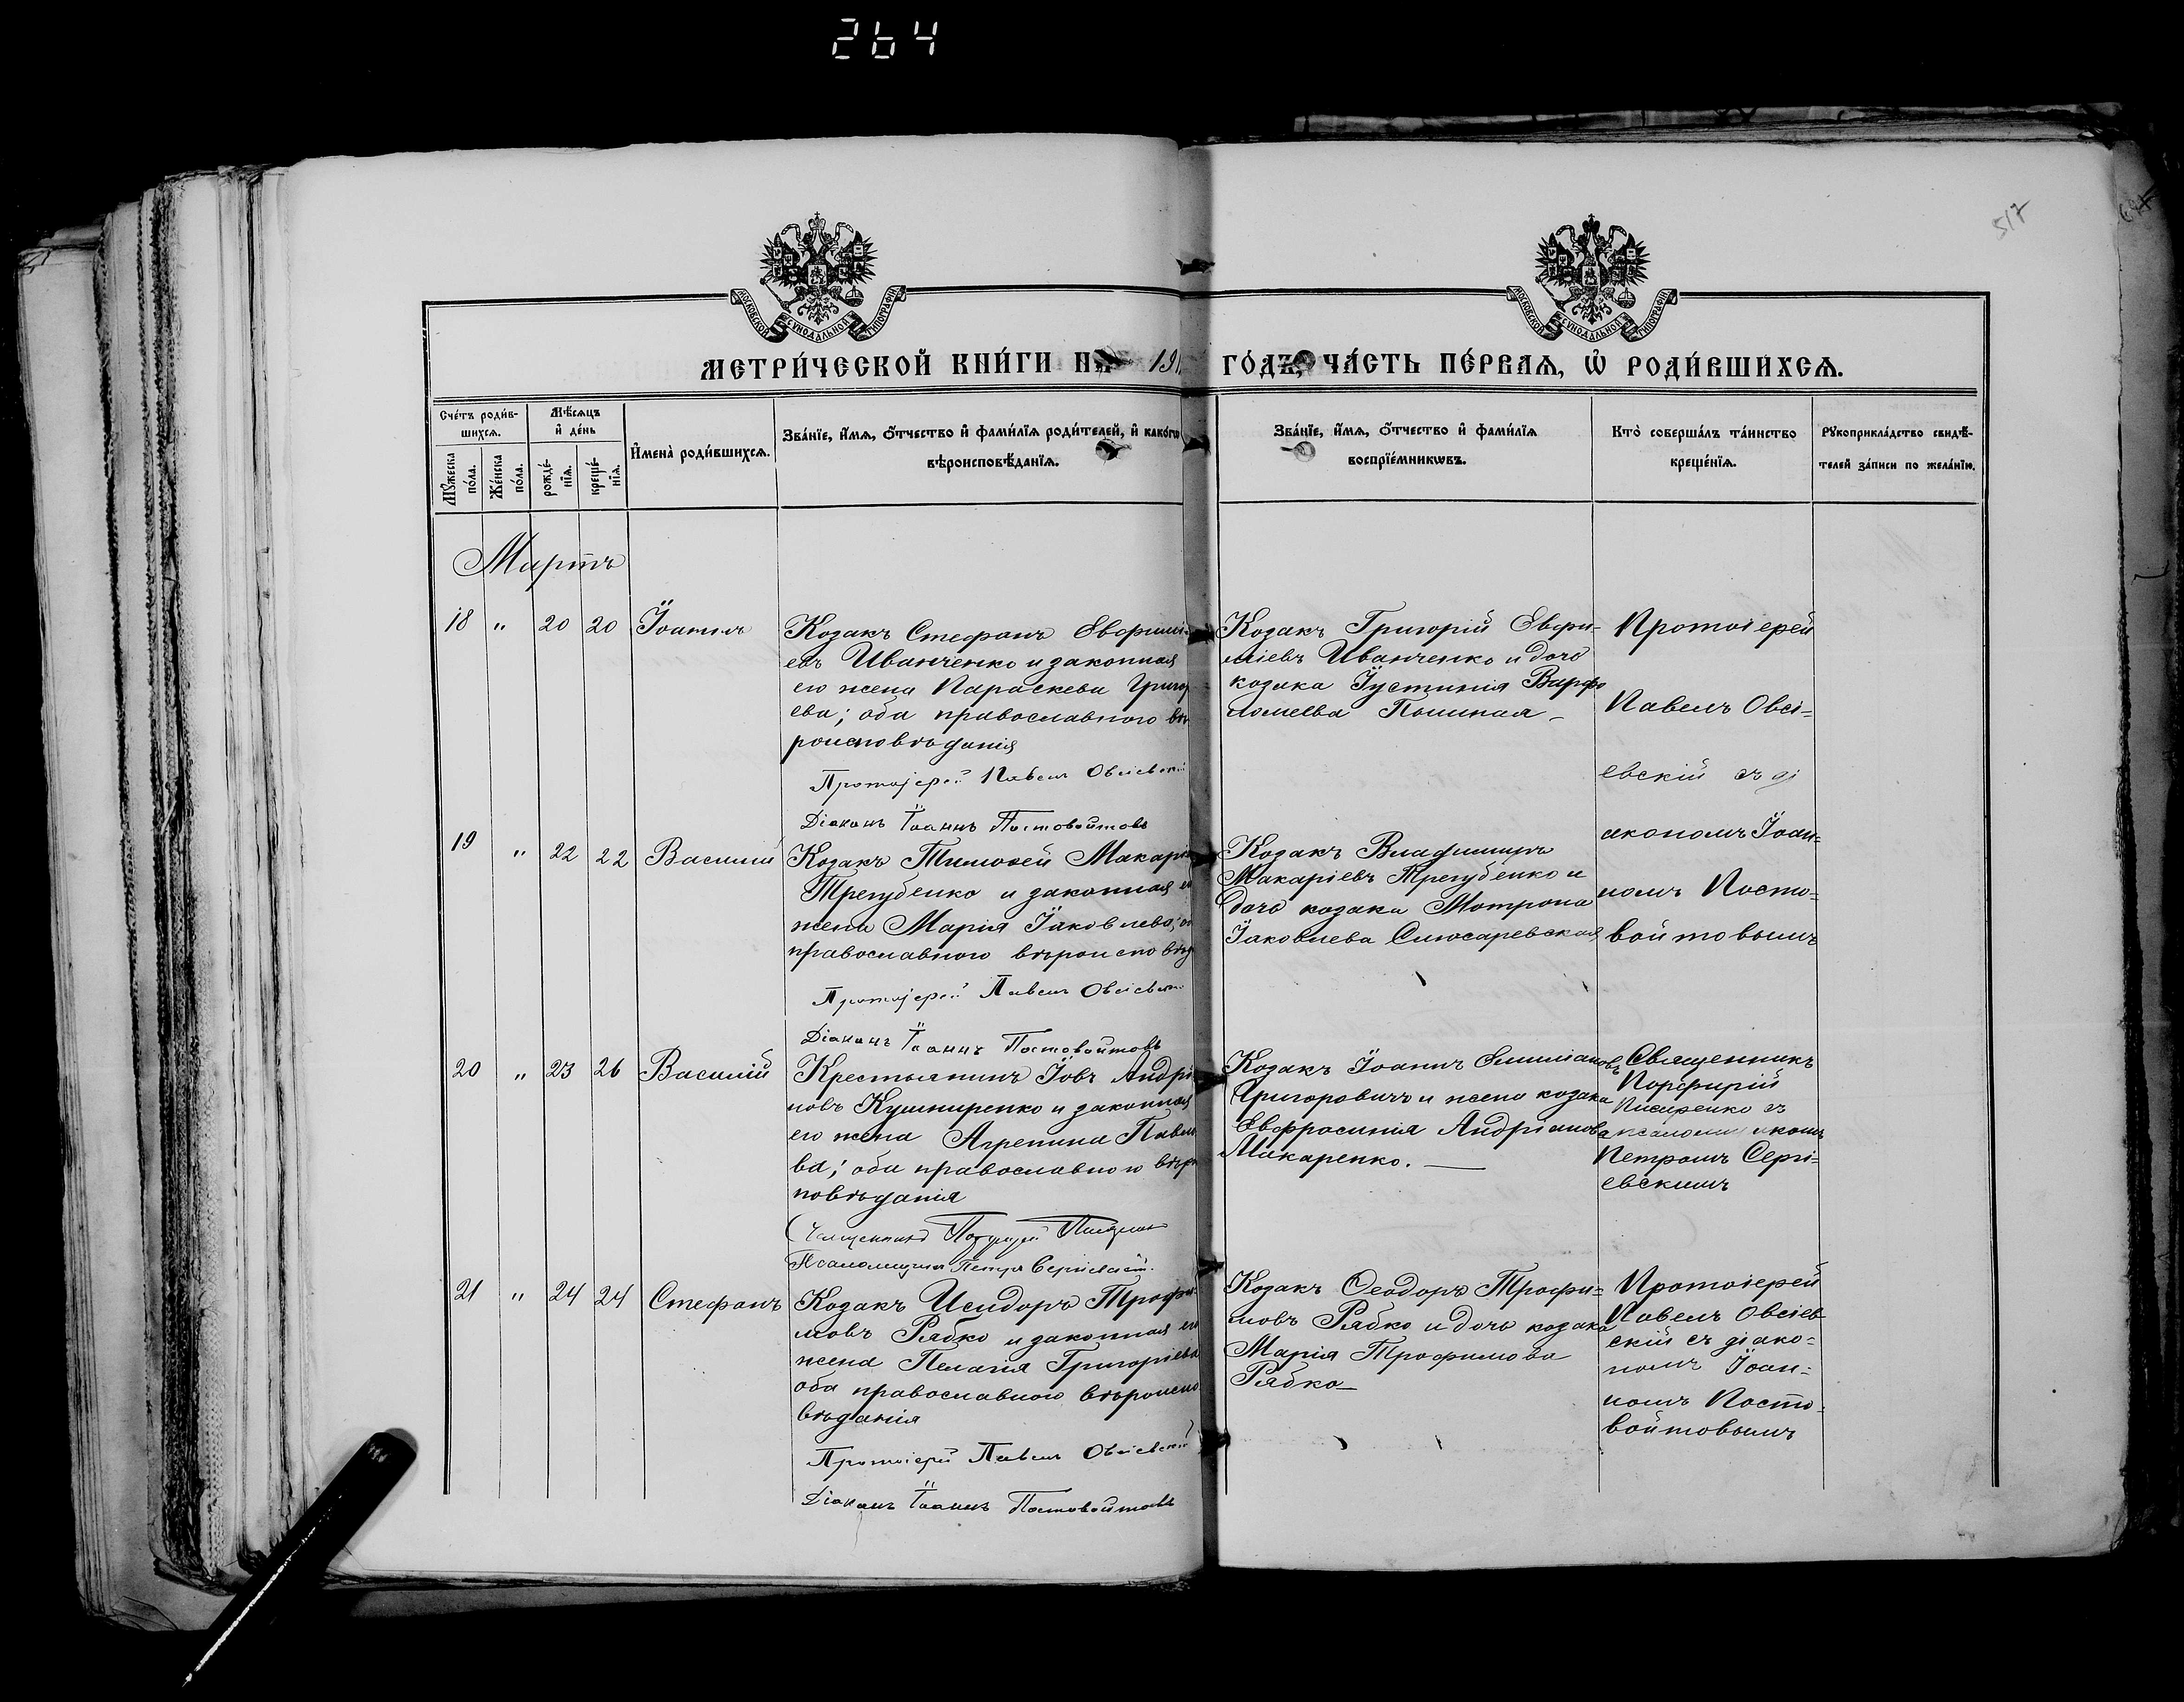 264
517
МОСКОВСКОЙ СѴНОДАЛЬНОЙ ТИПОГРАФІИ
МОСКОВСКОЙ СѴНОДАЛЬНОЙ ТИПОГРАФІИ
МЕТРИ́ЧЕСКОЙ КНИ́ГИ НА 191 ГО́ДЪ, ЧА́СТЬ ПЕ́РВАЯ, Ѡ РОДИ́ВШИХСЯ.
Сче́тъ роди́в-
шихся.
Мꙋ́жеска
по́ла.
Же́нска
по́ла.
Мѣ́сяцъ
и де́нь
рожде́-
нїя.
креще́-
нїя.
Имена̀ роди́вшихся.
Зва́нїе, и́мя, о́тчество и фами́лїя роди́телей, и како́гѡ
вѣроисповѣ́данїя.
Зва́нїе, и́мя, о́тчество и фами́лїя
воспрїе́мникѡвъ.
Кто̀ соверша́лъ та́инство
креще́нїя.
Рꙋкоприкла́дство свидѣ́-
телей за́писи по жела́нїю.
Мартъ
18 " 20 20 Іоаннъ
Козакъ Стефанъ Евфимі-
евъ Иванченко и законная
его жена Параскева Григор
ева; оба православного вѣ
роисповѣданія
Протоіерей Павелъ Овсіевскій
Діаконъ Іоаннъ Постовойтовъ
Козакъ Григорій Евфи-
міевъ Иванченко и дочь
козака Іустинія Варфо
ломеева
Протоіерей
Павелъ Овсі=
евскій съ ді
акономъ Іоан-
номъ Посто-
войтовымъ
19 " 22 22 Василій
Козакъ Тимоѳей Макарі
Трегубенко и законная ег
жена Марія Іаковлева; об
православного вѣроисповѣд
Протоіерей Павелъ Овсіевскій
Діаконъ Іоаннъ Постовойтовъ
Козакъ Владимиръ
Макаріевъ Трегубенко и
дочь козака Матрона
Іаковлева Слюсаревская
20 " 23 26 Василій
Крестьянинъ Іовъ Андрі
новъ Кушниренко и законная
его жена Агрепина Павло
ва; оба православного вѣро
повѣданія
Священникъ Порфирій
Псаломщикъ Петръ Сергіевскій
Козакъ Іоаннъ Емиліановъ
Григоровичъ и жена козака
Евфросинія Андріанова
Макаренко.
Священникъ
Порфирій
съ
псаломщикомъ
Петромъ Сергі=
евскимъ
21 " 24 24 Стефанъ
Козакъ Исидоръ Трофи
мовъ Рябко и законная его
жена Пелагія Григоріева
оба православного вѣроиспо
вѣданія
Протоіерей Павелъ Овсіевскій
Діаконъ Іоаннъ Постовойтовъ
Козакъ Ѳеодоръ Трофи=
мовъ Рябко и дочь козака
Марія Трофимова
Рябко
Протоіерей
Павелъ Овсіев
скій съ діако-
номъ Іоан-
номъ Посто-
войтовымъ